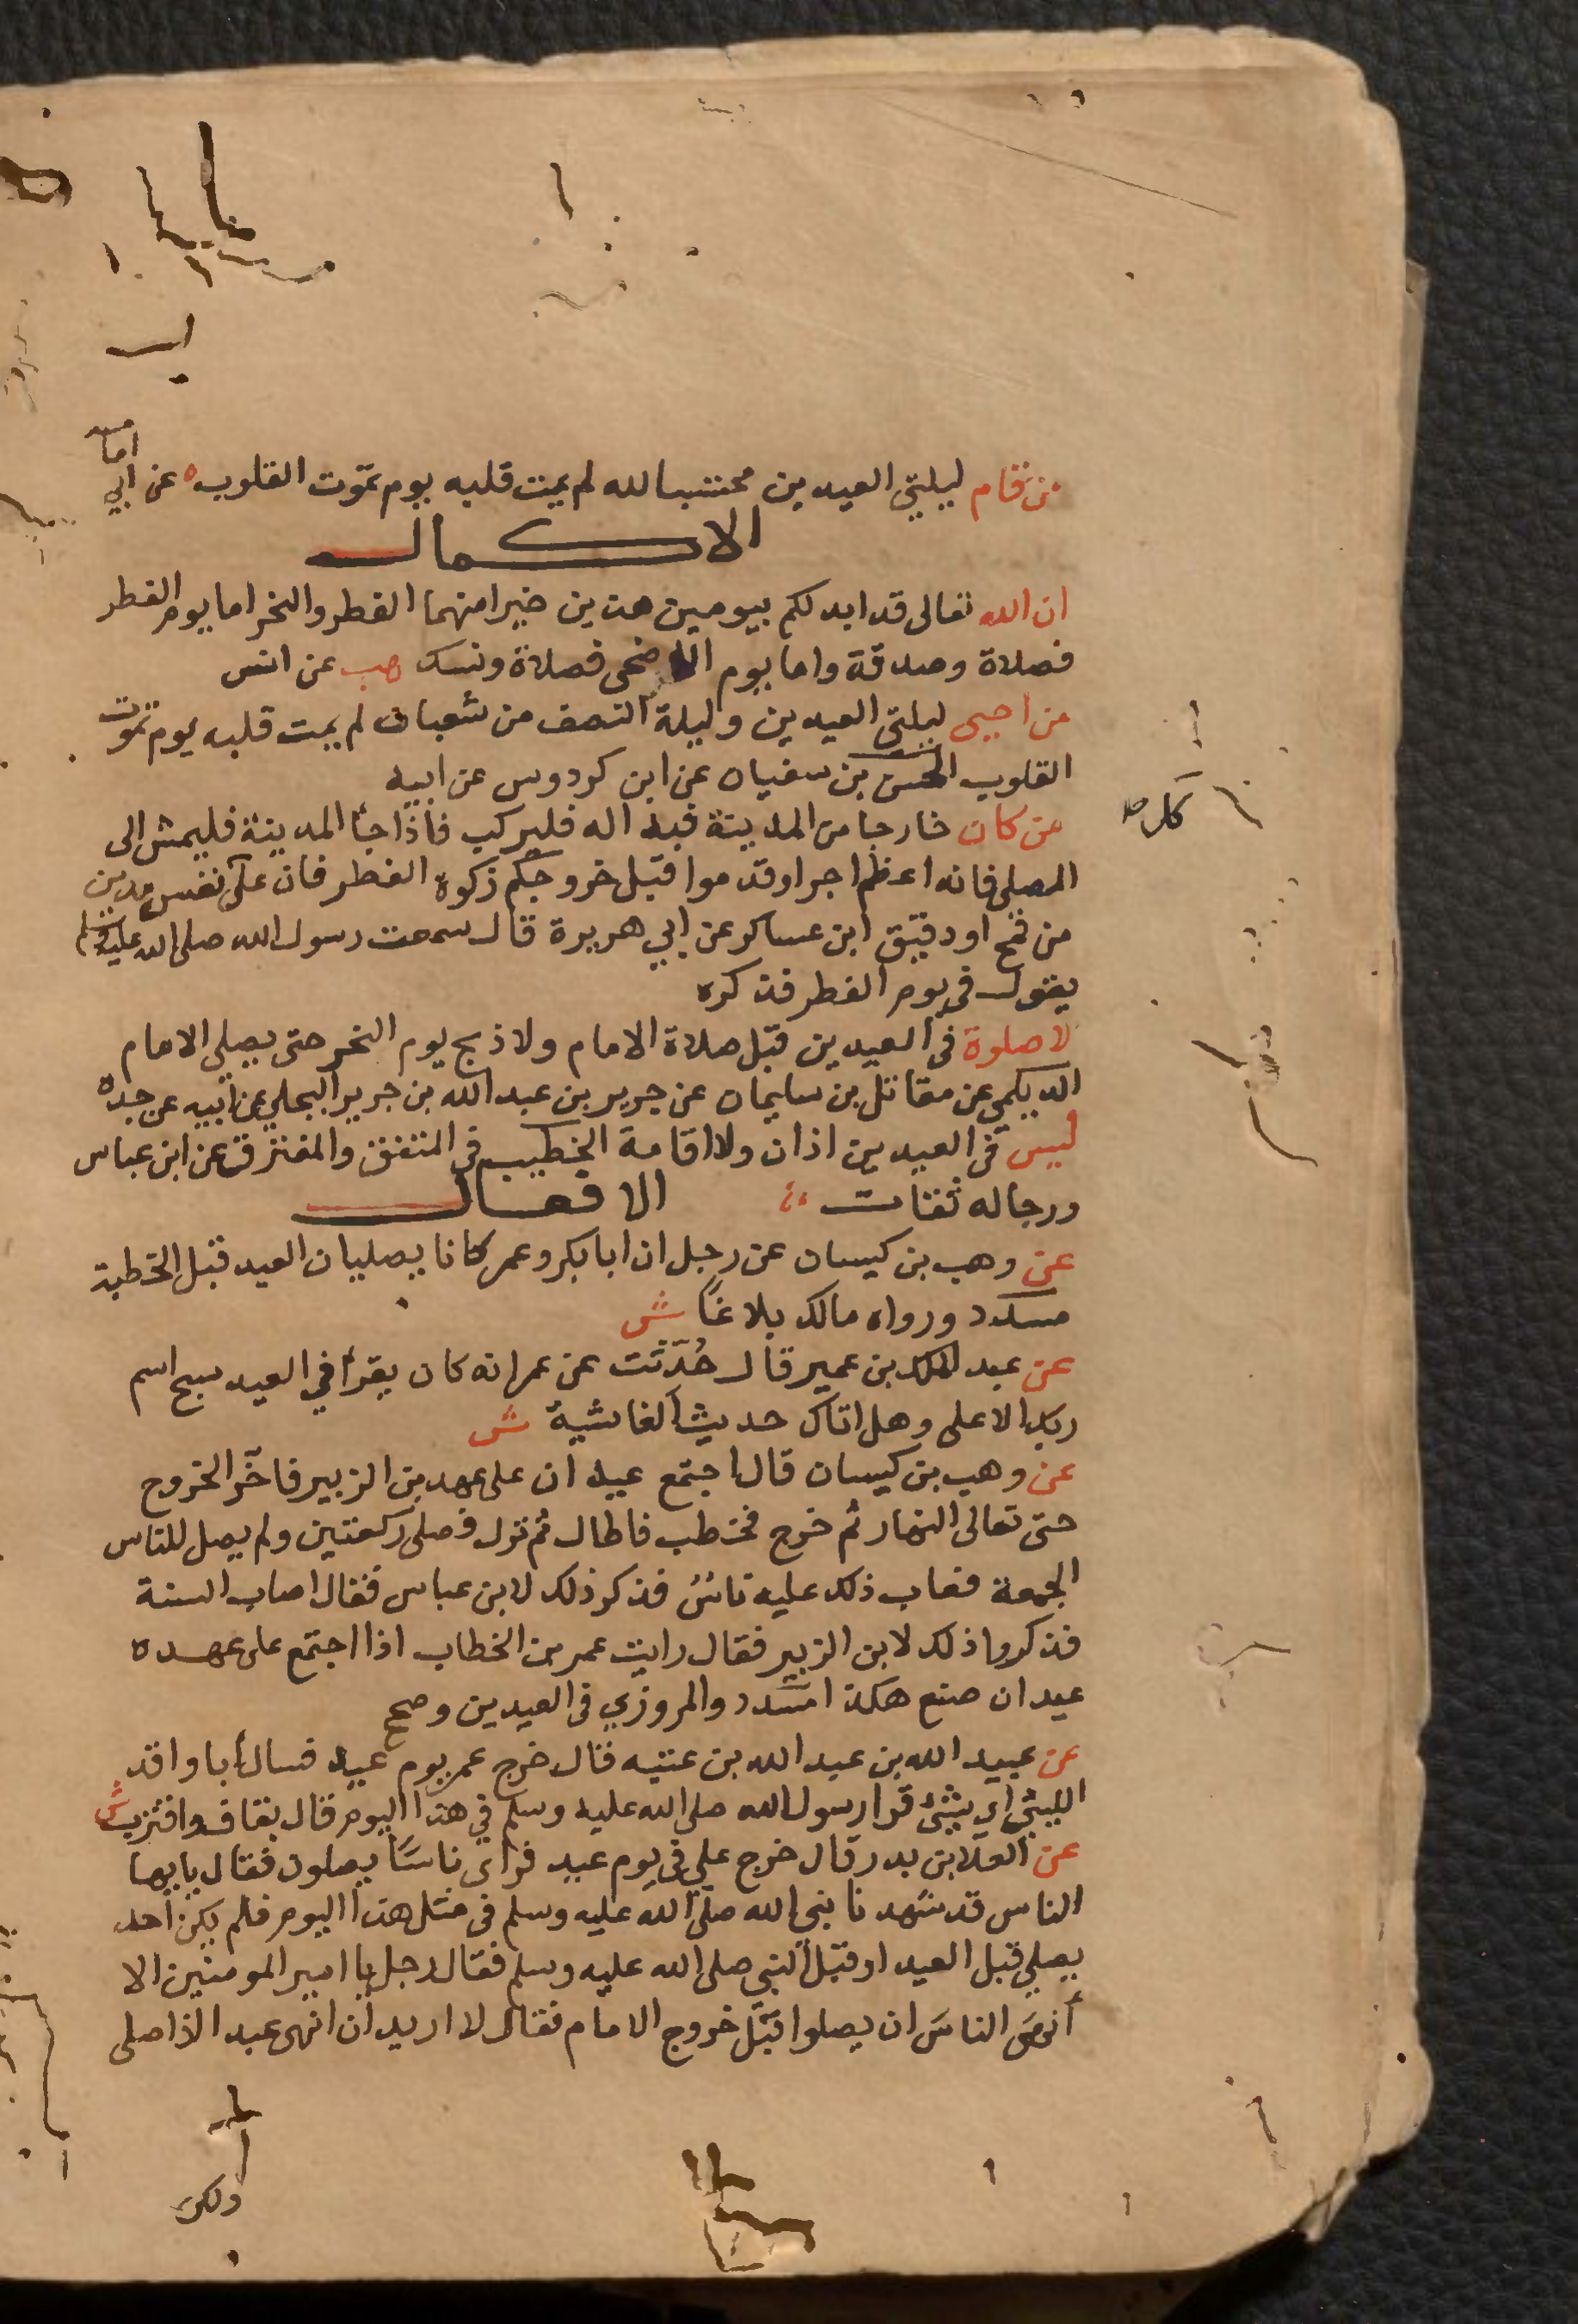 من قام ليلتي العيدين محتسبا لله لم يمت قلبه يوم تموت القلوب ه عن ابي امامه
الاكمال
ان الله تعالى قد ابدلكم بيومين هذين خيرا منهما الفطر والنحر اما يوم الفطر
فصلاة وصدقة واما يوم الاضحى فصلاة ونسك هب عن انس
من احيى ليلتي العيدين وليلة النصف من شعبان لم يمت قلبه يوم تموت
القلوب الحسن بن سفيان عن ابن كردوس عن ابيه
من كان خارجا من المدينة فبدا له فليركب فاذا جأ المدينة فليمش الى
المصلى فانه اعظم اجرا وقدموا قبل خروجكم زكوة الفطر فان على نفس مدين
من قمح او دقيق ابن عساكر عن ابي هريرة قال سمعت رسول الله صلى الله عليه وسلم
يقول في يوم الفطر فذكره
لا صلوة في العيدين قبل صلاة الامام ولا ذبح يوم النحر حتى يصلي الامام
الديلمي عن مقاتل بن سليمان عن جرير بن عبد الله بن جرير البجلي عن ابيه عن جده
ليس في العيدين اذان ولا اقامة الخطيب في المتفق والمفترق عن ابن عباس
ورجاله ثقات
الافعال
عن وهب بن كيسان عن رجل ان ابا بكر وعمر كانا يصليان العيد قبل الخطبة
مسدد ورواه مالك بلاغًا ش
عن عبد الملك بن عمير قال حُدّثت عن عمر انه كان يقرأ في العيد سبح اسم
ربك الاعلى وهل اتاك حديث الغاشية ش
عن وهب بن كيسان قال اجتمع عيدان على عهد بن الزبير فاخّر الخروج
حتى تعالى النهار ثم خرج فخطب فاطال ثم نزل فصلى ركعتين ولم يصل للناس
الجمعة فعاب ذلك عليه ناسٌ فذكر ذلك لابن عباس فقال اصاب السنة
فذكروا ذلك لابن الزبير فقال رايت عمر بن الخطاب اذا اجتمع على عهده
عيدان صنع هكذا مسدد والمروزي في العيدين وصحح
عن عبيد الله بن عبد الله بن عتبه قال خرج عمر يوم عيد فسال أبا واقد
الليثي اي بشئ قرا رسول الله صلى الله عليه وسلم في هذا اليوم قال بقاف واقتربت ش
عن العلا بن بدر قال خرج علي في يوم عيد فراى ناسًا يصلون فقال يايها
الناس قد شهدنا نبي الله صلى الله عليه وسلم في مثل هذا اليوم فلم يكن احد
يصلي قبل العيد او قبل النبي صلى الله عليه وسلم فقال رجل يا امير المومنين الا
أنهى الناسَ ان يصلوا قبل خروج الامام فقال لا اريد ان انهى عبد الذا صلى
ولكن